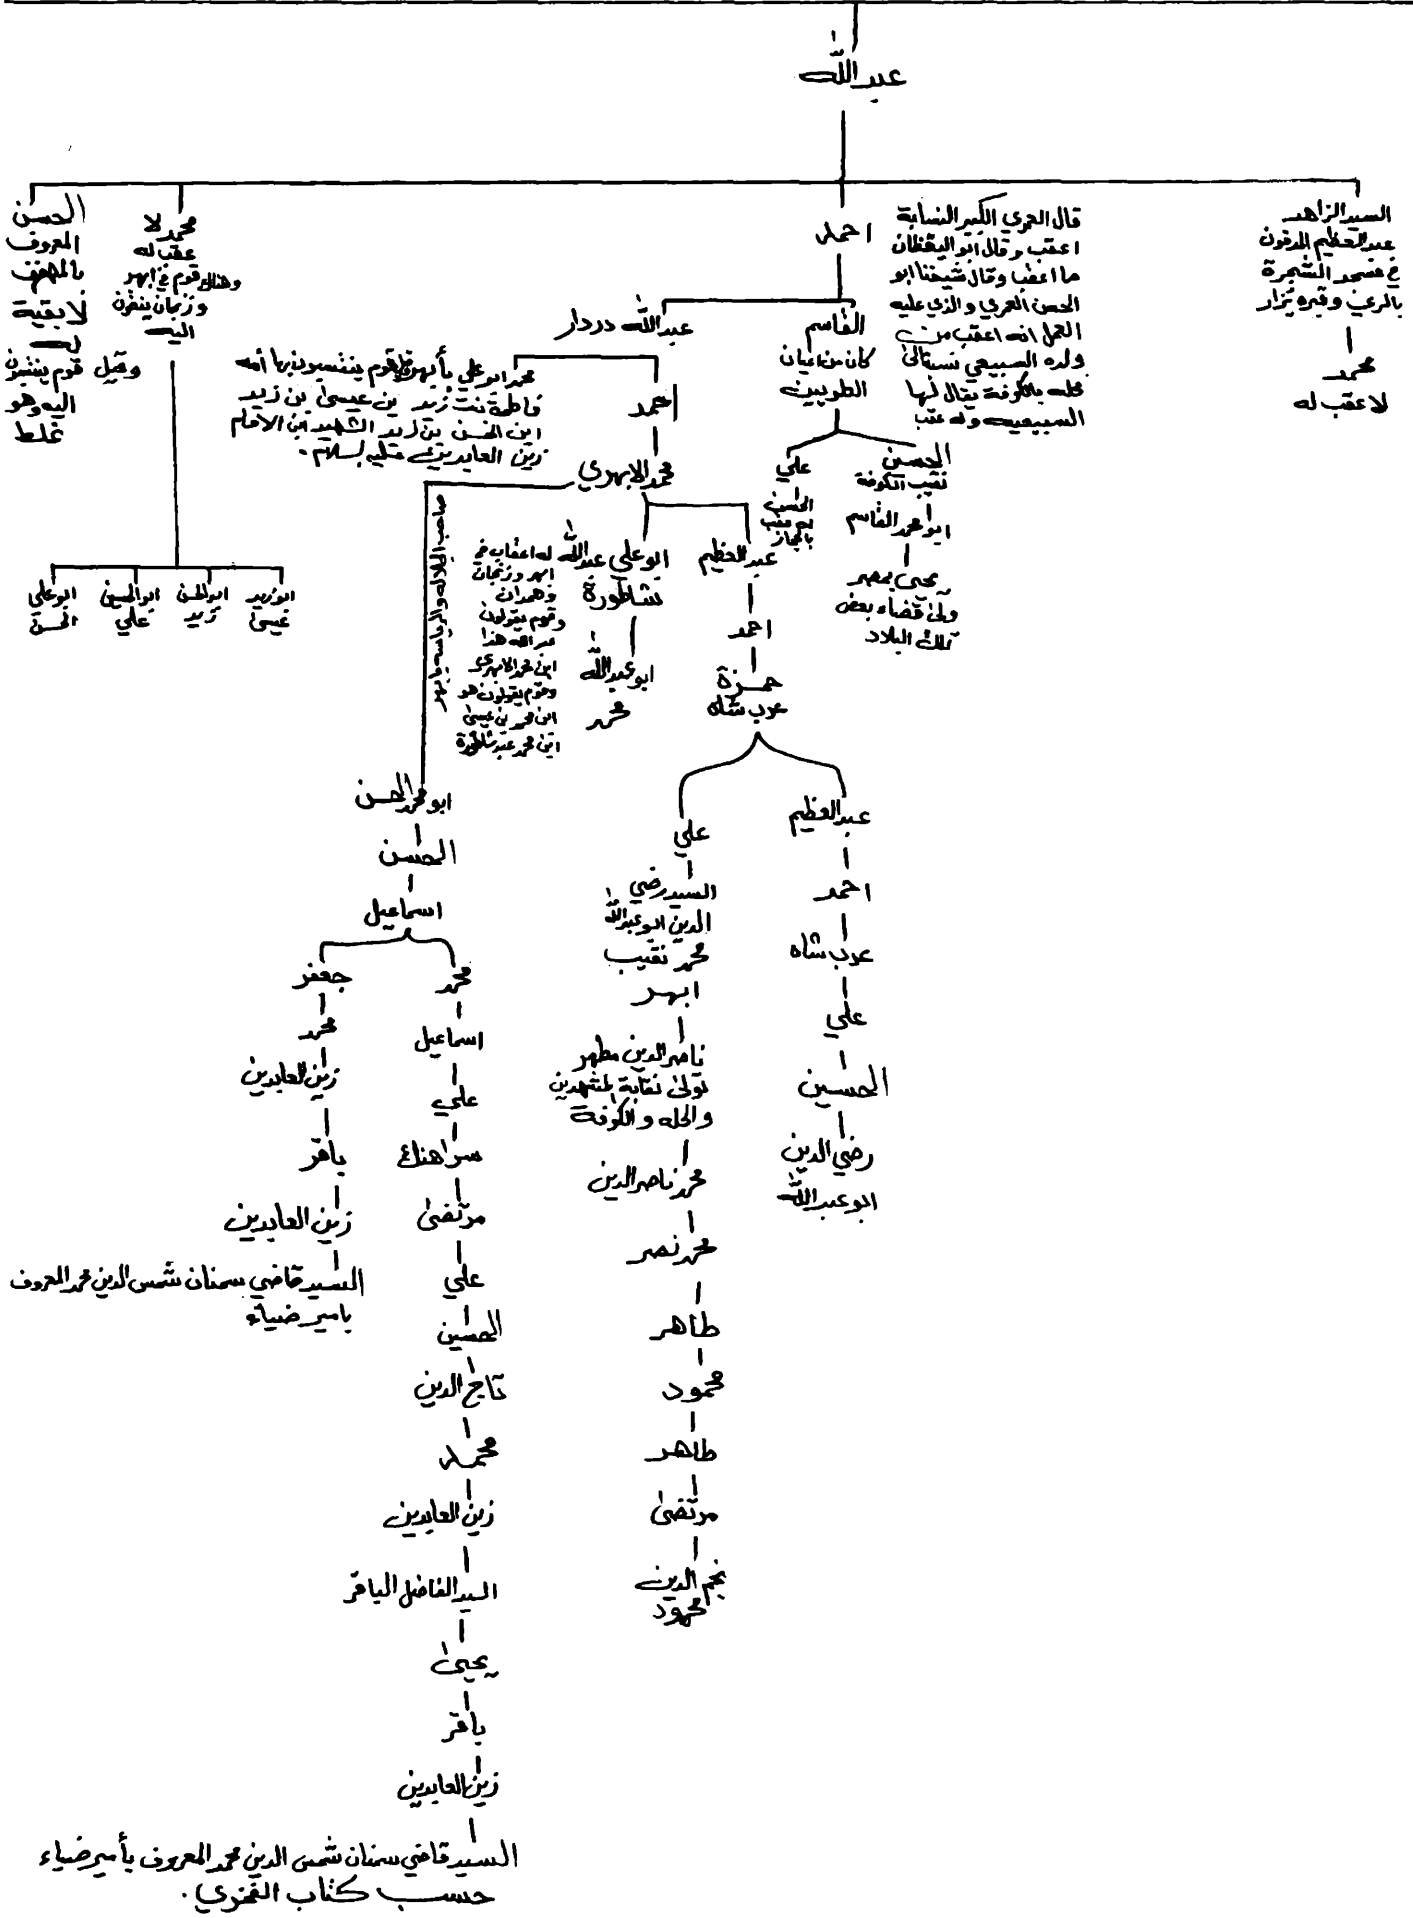 عبد الله
السيد الزاهد
عبد العظيم المدفون
في مسجد الشجرة
بالري وقبره يزار
محمد
لا عقب له
قال العمري الكبير النسابة
اعقب وقال ابو اليقظان
ما اعقب وقال شيخنا ابو
الحسن العمري والذي عليه
العمل انه اعقب من
ولده السبيعي نسبة الى
محله بالكوفة يقال لها
السبيعيه وله عقب
احمد
القاسم
كان من اعيان
الطوبيين
الحسين
نقيب الكوفة
ابو محمد القاسم
يحيى بمصر
ولي قضاء بعض
تلك البلاد
علي
الحسن
له عقب
بالحجاز
عبد الله دردار
احمد
محمد ابو علي بأبهر قوم ينتسبون بها أمه
فاطمة بنت زيد بن عيسى بن زيد
ابن الحسن بن زيد الشهيد ابن الامام
زين العابدين عليه السلام.
محمد الابهري
عبد العظيم
احمد
حمزة
عرب شاه
عبد العظيم
احمد
عرب شاه
علي
الحسين
رضي الدين
ابو عبد الله
علي
السيد رضي
الدين ابو عبد الله
محمد نقيب
ابهر
ناصر الدين مطهر
تولى نقابة المشهدين
والحله والكوفة
محمد ناصر الدين
محمد نصر
طاهر
محمود
طاهر
مرتضى
نجم الدين
محمود
ابو علي عبد الله
شاطورة
ابو عبد الله
محمد
له اعقاب في
ابهر وزنجان
وهمدان
وقوم يقولون
عبد الله هذا
ابن محمد الابهري
وقوم يقولون هو
ابن محمد بن عيسى
ابن محمد عبد شاطورة
صاحب الجلاله والرياسه بابهر
ابو محمد الحسن
الحسن
اسماعيل
محمد
اسماعيل
علي
سراهنك
مرتضى
علي
الحسين
تاج الدين
محمد
زين العابدين
السيد الفاضل الباقر
يحيى
باقر
زين العابدين
السيد قاضي سمنان شمس الدين محمد المعروف بأمير ضياء
حسب كتاب الفخري.
جعفر
محمد
زين العابدين
باقر
زين العابدين
السيد قاضي سمنان شمس الدين محمد المعروف
بامير ضياء
محمد لا
عقب له
وهناك قوم في ابهر
وزنجان ينتمون
اليه
ابو زيد
عيسى
ابو الحسن
زيد
ابو الحسين
علي
ابو علي
الحسن
الحسن
المعروف
لا بقية
له
وقيل قوم ينتمون
اليه وهو
غلط